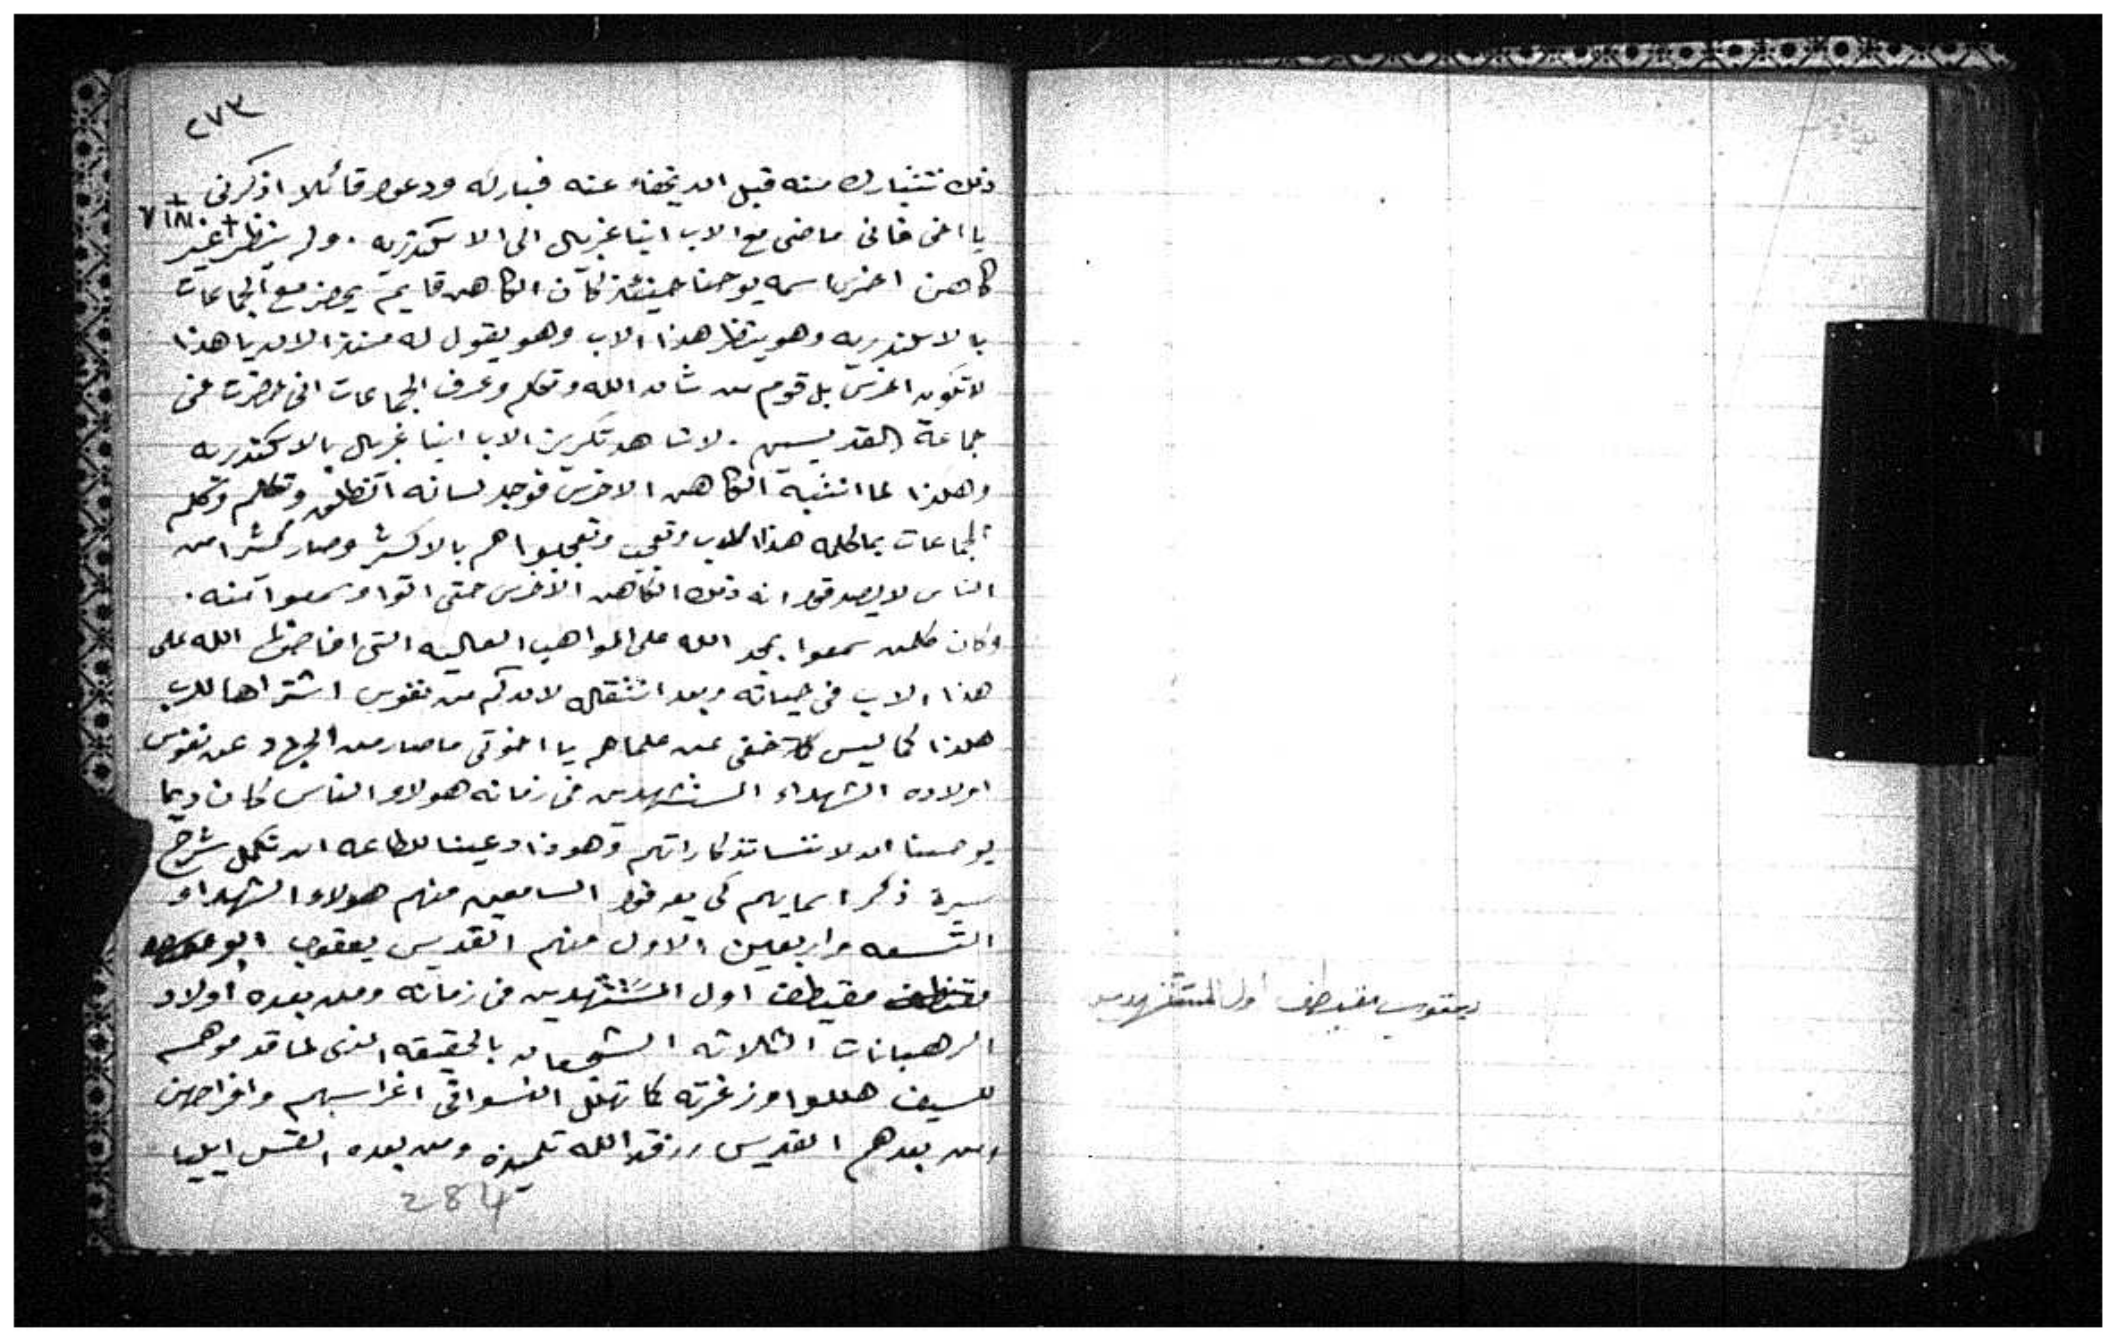 ٢٧٣
ذلك نتبارك منه قبل ان يخفا عنه فباركه ودعوه قائلا اذكرنى
يا اخى فانى ماضى مع الاب انبا غبريال الى الاسكندريه . ولم ينظر غير
كاهن اخرس اسمه يوحنا حينئذ كان الكاهن قايم يحضر مع الجماعات
بالاسكندريه وهو ينظر هذا الاب وهو يقول له منذ الان يا هذا
لا تكون اخرس بل قوم من شان الله وتكلم وعرف الجماعات انى حضرت فى
جماعة القديسين . لاشاهد تكريز الاب انبا غبريال بالاسكندريه
وهكذا لما انتبه الكاهن الاخرس فوجد لسانه انطلق وتكلم وكلم
الجماعات بما كلمه هذا الاب وتعجب وتعجبوا هم بالاكثر وصار كثيرا من
الناس لا يصدقوا انه ذلك الكاهن الاخرس حتى اتوا وسمعوا منه .
وكان كلمن سمعوا يمجد الله على المواهب العاليه التى افاضها الله على
هذا الاب فى حياته وبعد انتقاله لان كم من نفوس اشتراها للرب
هكذا كما ليس خفى عن علماهم يا اخوتى ما صار من الجهاد عن نفوس
اولاده الشهداء المستشهدين فى زمانه هولاء الناس كان ديما
يوصينا ان لا ننسا تذكاراتهم وهوذا دعينا للطاعه ان نكمل شرح
سيرة ذكر اسمايهم كى يعرفوا السامعين منهم هولاء الشهداء
التسعه واربعين الاول منهم القديس يعقوب ابو
مقيطف اول المستشهدين فى زمانه ومن بعده اولاد
الرهبانات الثلاثه الشجعان بالحقيقه الذى لما قدموهم
للسيف هللوا وزغرته كما تهلل النسوا فى اعراسهم وافراحهن
ومن بعدهم القديس رزق الله تلميذه ومن بعده القس ايليا
284
يعقوب مقيطف اول المستشهدين